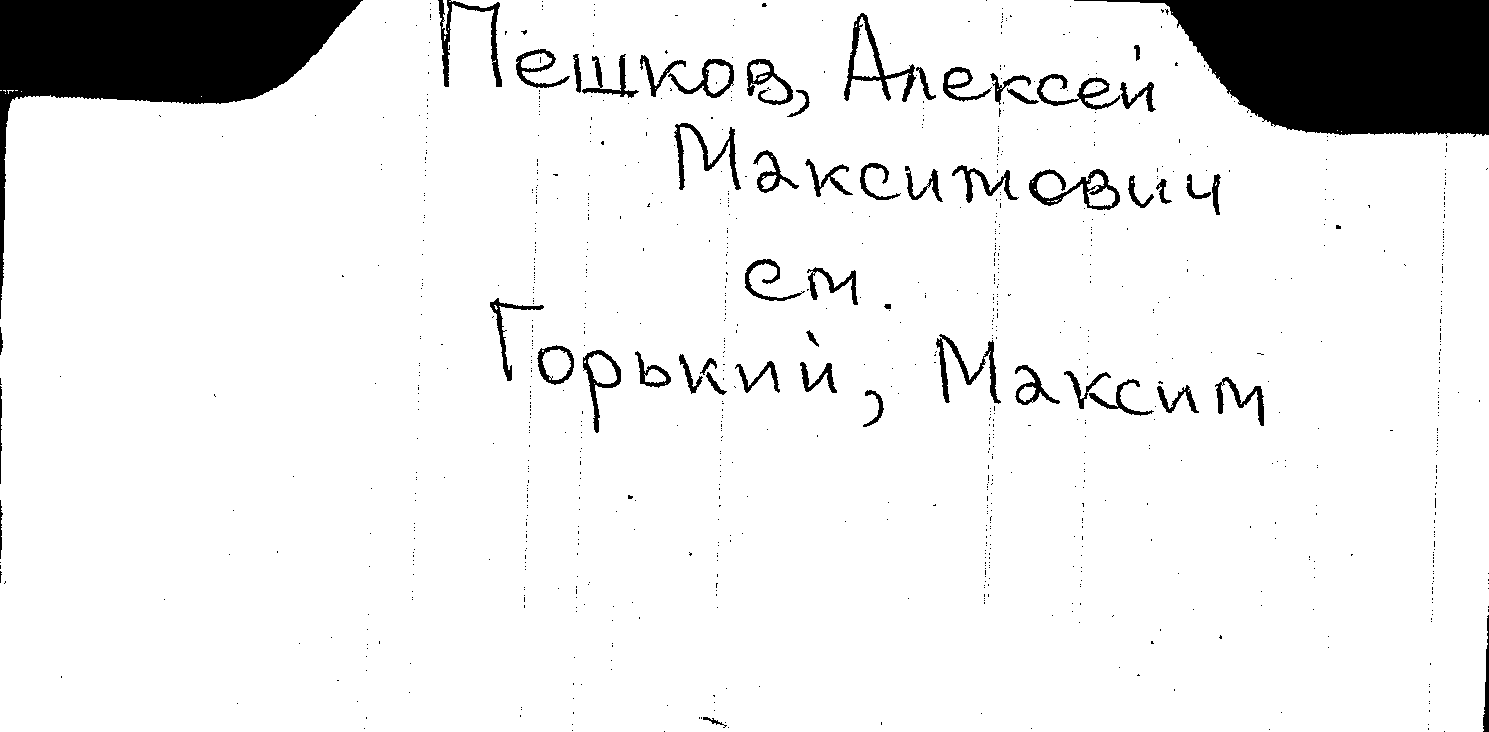 Пешков, Алексей
Максимович
см.
Горький, Максим